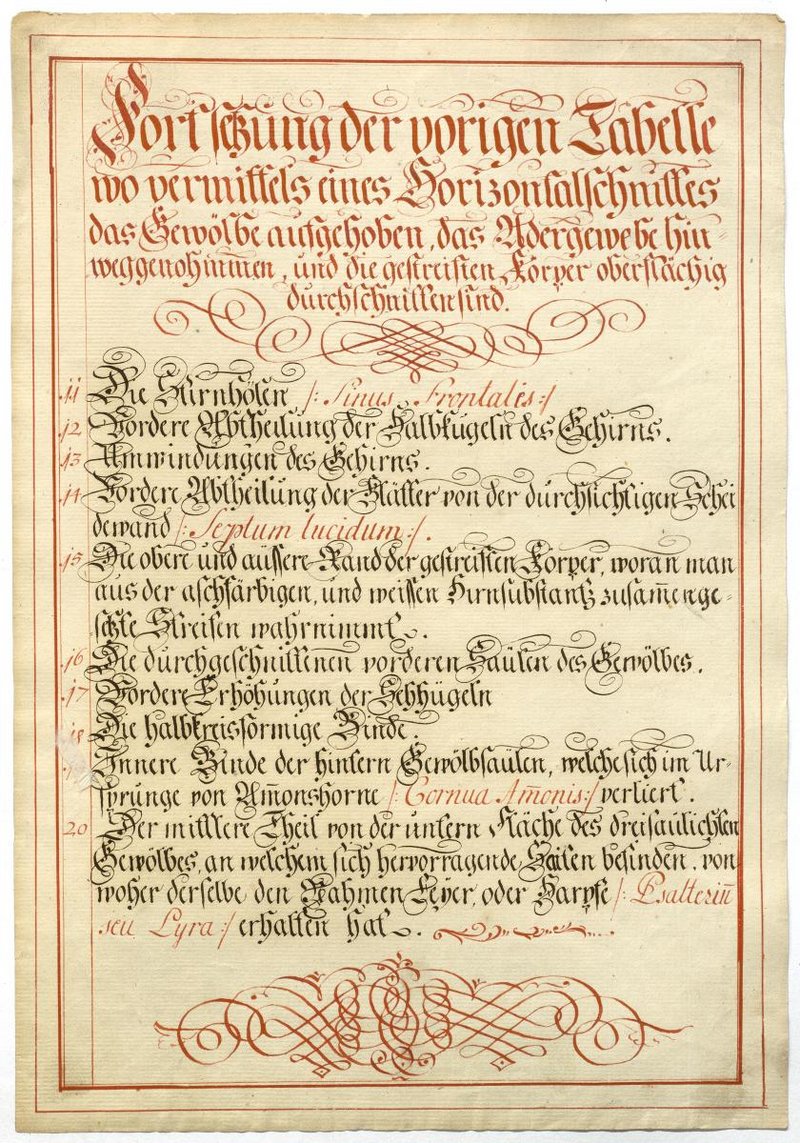 Fortsetzung der vorigen Tabelle
wo vermittels eines Horizontalschnittes
das Gewölbe aufgehoben, das Adergewebe hin-
weggenohmmen, und die gestreiften Körper oberflächig
durchschnitten sind.
11 Die Stirnhölen /: Sinus Frontalis :/
12 Vordere Abtheilung der Halbkugeln des Gehirns.
13 Umwindungen des Gehirns.
14 Vordere Abtheilung der Blätter von der durchsichtigen Schei
dewand /: Septum lucidum :/.
15 Die obere und äussere Rand der gestreiften Körper, woran man
aus der aschfärbigen, und weissen Hirnsubstantz zusam̄enge-
setzte Streifen wahrnimmt.
16 Die durchgeschnittenen vorderen Säulen des Gewölbes.
17 Vordere Erhöhungen der Sehhügeln
18 Die halbkreisförmige Binde.
Innere Binde der hintern Gewölbsäulen, welche sich im Ur-
sprunge von Am̄onshorne /: Cornua Am̄onis :/ verliert.
20 Der mittlere Theil von der untern Fläche des dreisäulichten
Gewölbes, an welchem sich hervorragende Saiten befinden, von
woher derselbe den Nahmen Leyer, oder Harpfe /: Psalteriū
seu Lyra :/ erhalten hat.